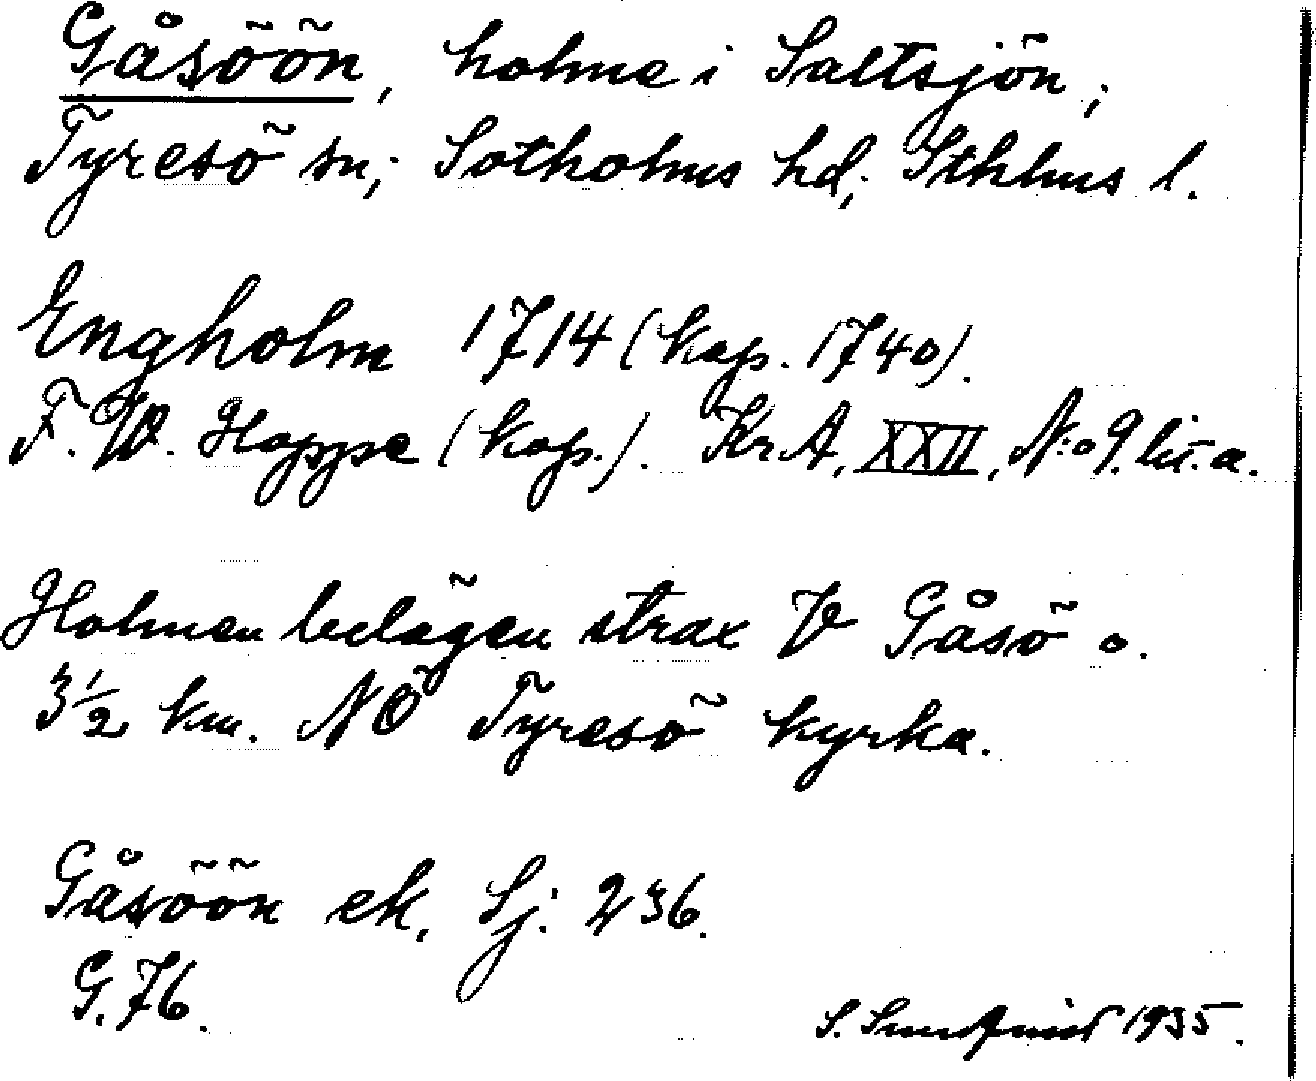 Gåsöön, holme i Saltsjön,
Tyresö sn; Sotholms hd; Sthlms l.
Engholm 1714 (kop. 1740).
F. W. Hoppe (kop.). Kr A, XXII, N:o 9. lit. a.
Holmen belägen strax V Gåsö o.
3 1/2 km. NÖ Tyresö kyrka.
Gåsöön ek. Sj. 236.
G. 76.
S. 1935.